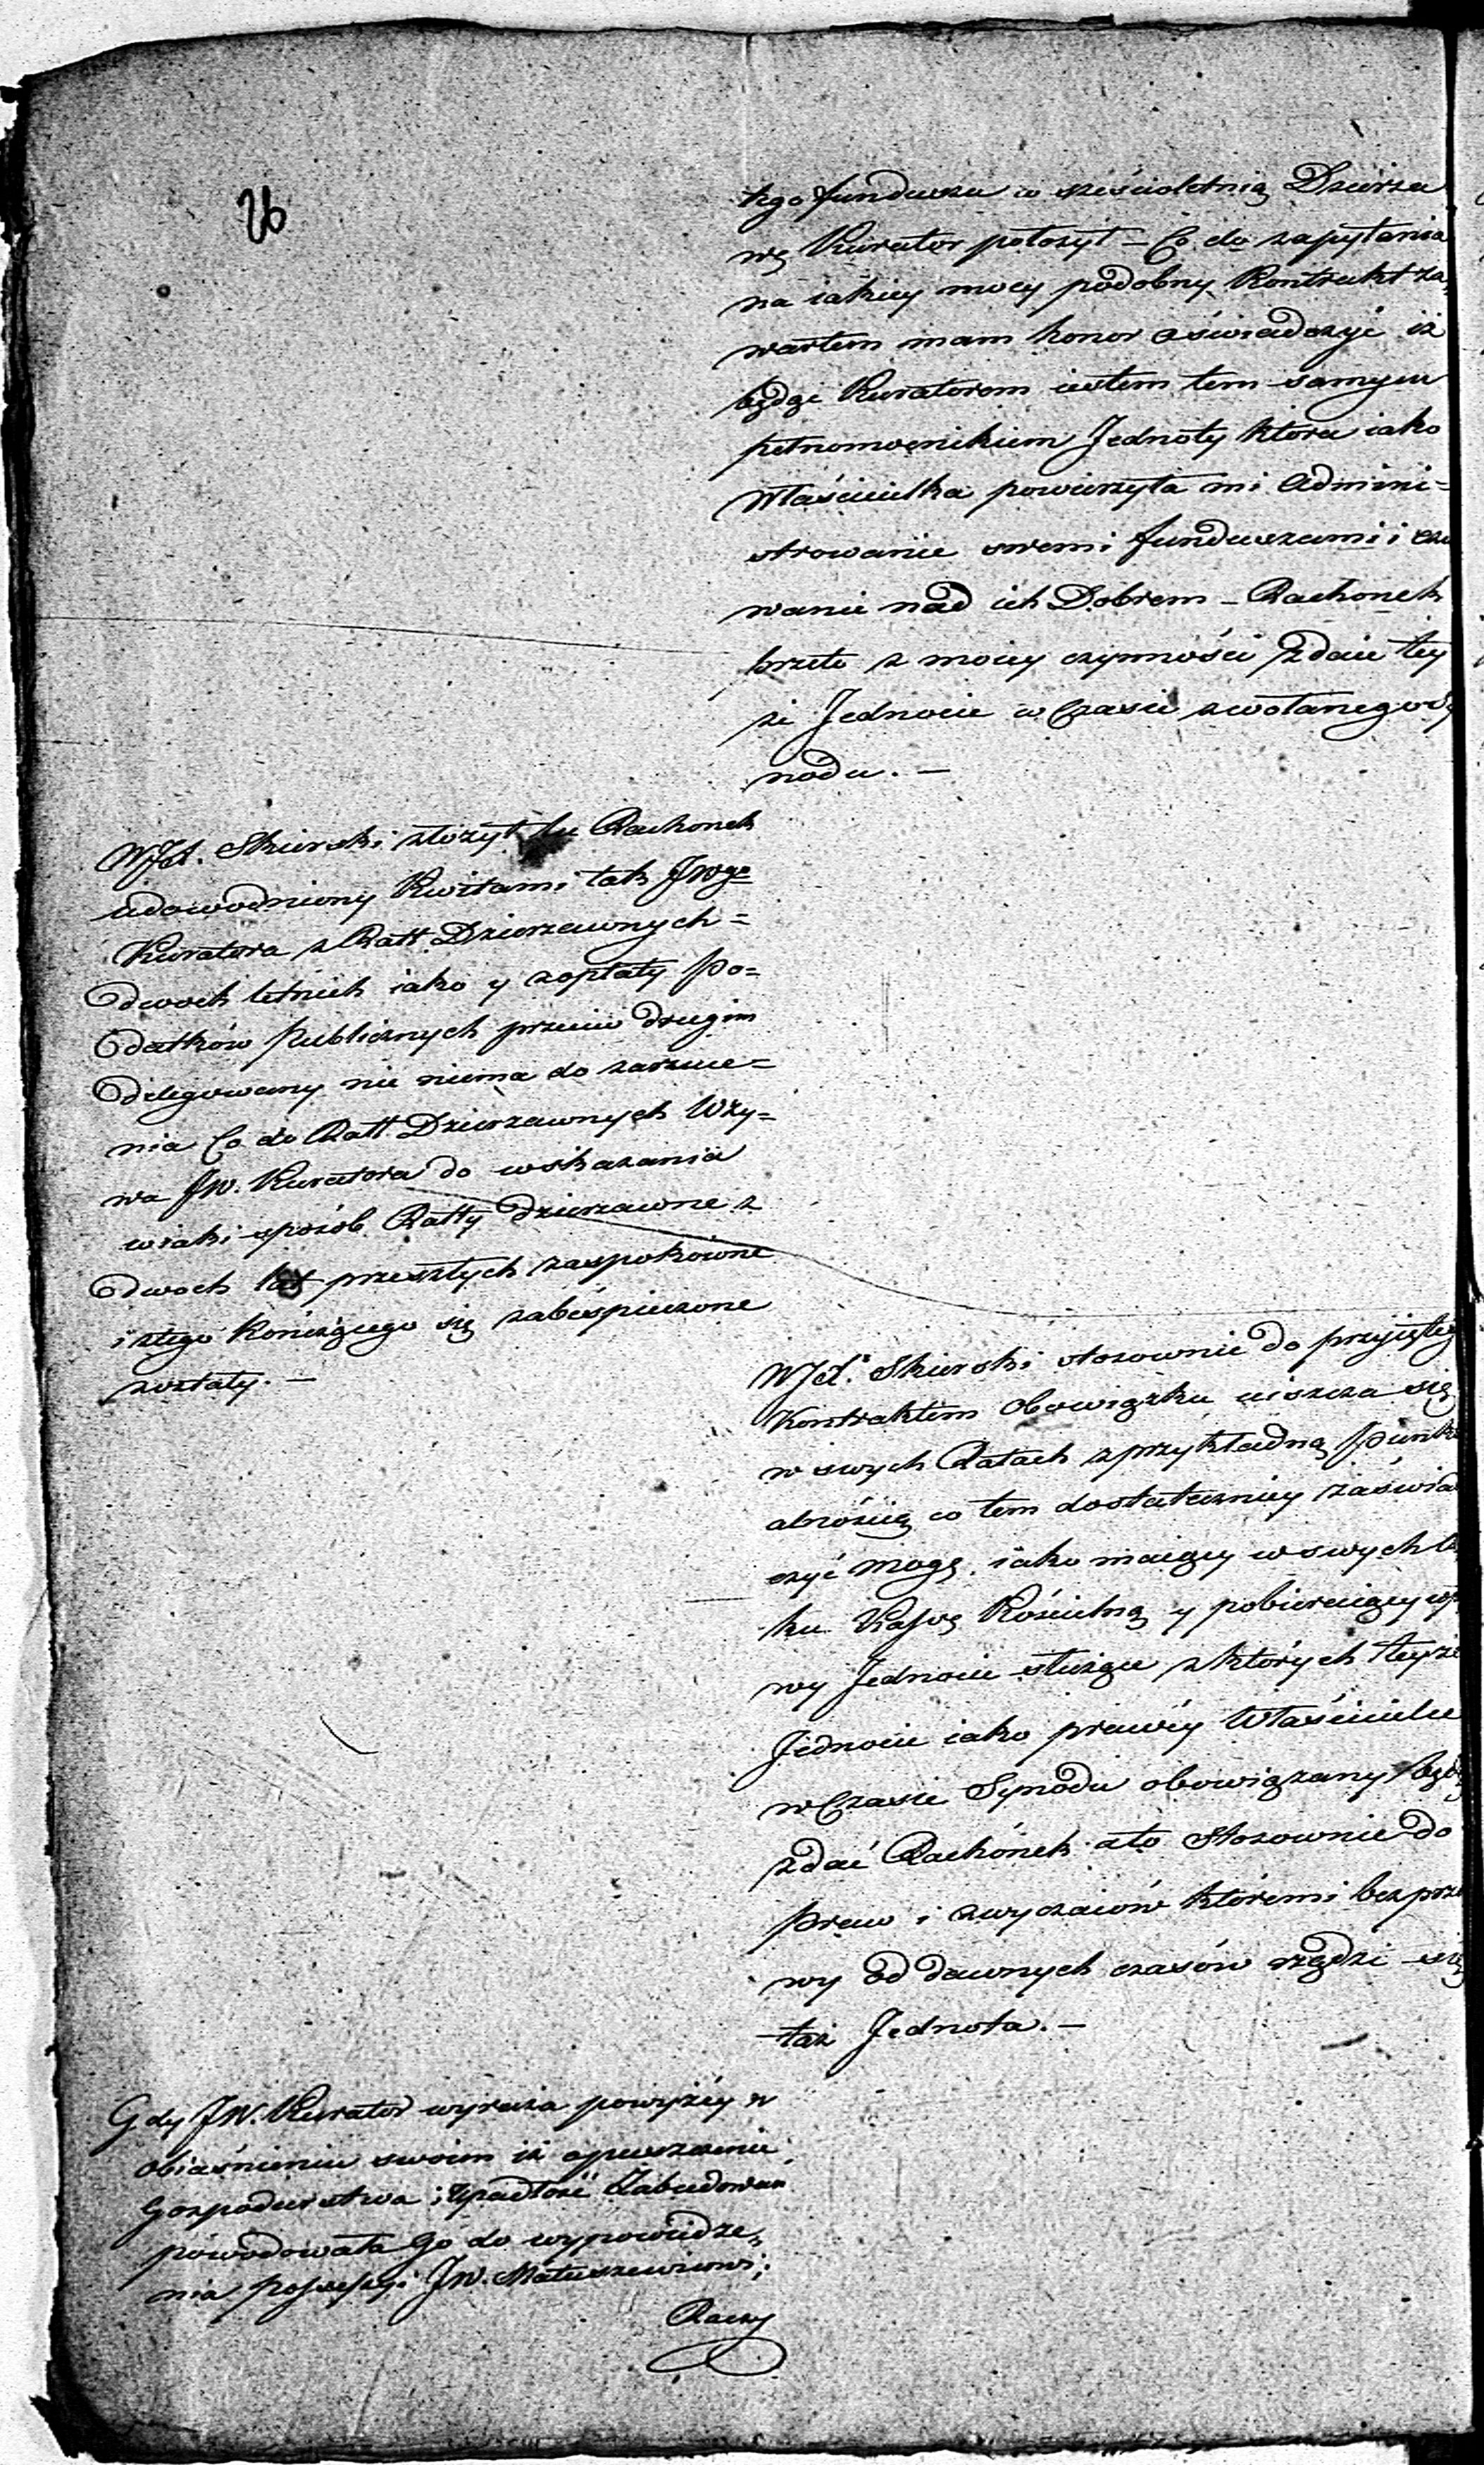 26
tego funduszu w sześcioletnią Dzierża
wę Kurator położył – Co do zapytania
na iakiey mocy podobny Kontrakt za,
warłem mam honor oświadczyć iż
będąc Kuratorem iestem tem samym
pełnomocnikiem Jednoty która iako
Właścicielka powierzyła mi Admini=
strowanie swemi funduszami i czu
wanie nad ich Dobrem – Rachonek
przeto z moiey czynności zdaię tey
że Jednocie w Czasie zwołanego Sy
nodu. –
WJX. Skierski złożył tu Rachonek
udowodniony Kwitami tak JWgo
Kuratora z Ratt Dzierzawnych =
dwoch letnich iako y zopłaty Po=
datków Publicznych przeciw drugim
Delegowany nic niema do zarzuce=
nia Co do Ratt Dzierzawnych Wzy=
wa JW. Kuratora do wskazania
wiaki sposób Ratty dzierzawne z
dwoch lat przeszłych zaspokoione
i ztego Kończącego się zabespieczone
zostały. –
WJX. Skierski stosownie do przyięteg
Kontraktem Obowiązku uiszcza się
w swych Ratach zprzykładną Punktu
alnością co tem dostateczniey zaświad
czyć mogę, iako maiący w swych
ku Kassę Kościelną y pobieraiący
wy Jednocie służące z których teyże
Jednocie iako prawéy Właścicielce
w Czasie Synodu obowiązany będę
zdać Rachónek ato Stosownie do
praw i zwyczaiów któremi bez prze
wy od dawnych czasów rządzi się
taż Jednota. –
Gdy JW. Kurator wyraża powyżéy w
obiaśnieniu swoim iż opuszczenie
Gospodarstwa i Upadłość Zabudowań
powodowała Go do wypowiedze,
nia possessyi JW. Matuszewiczowi;
Raczy